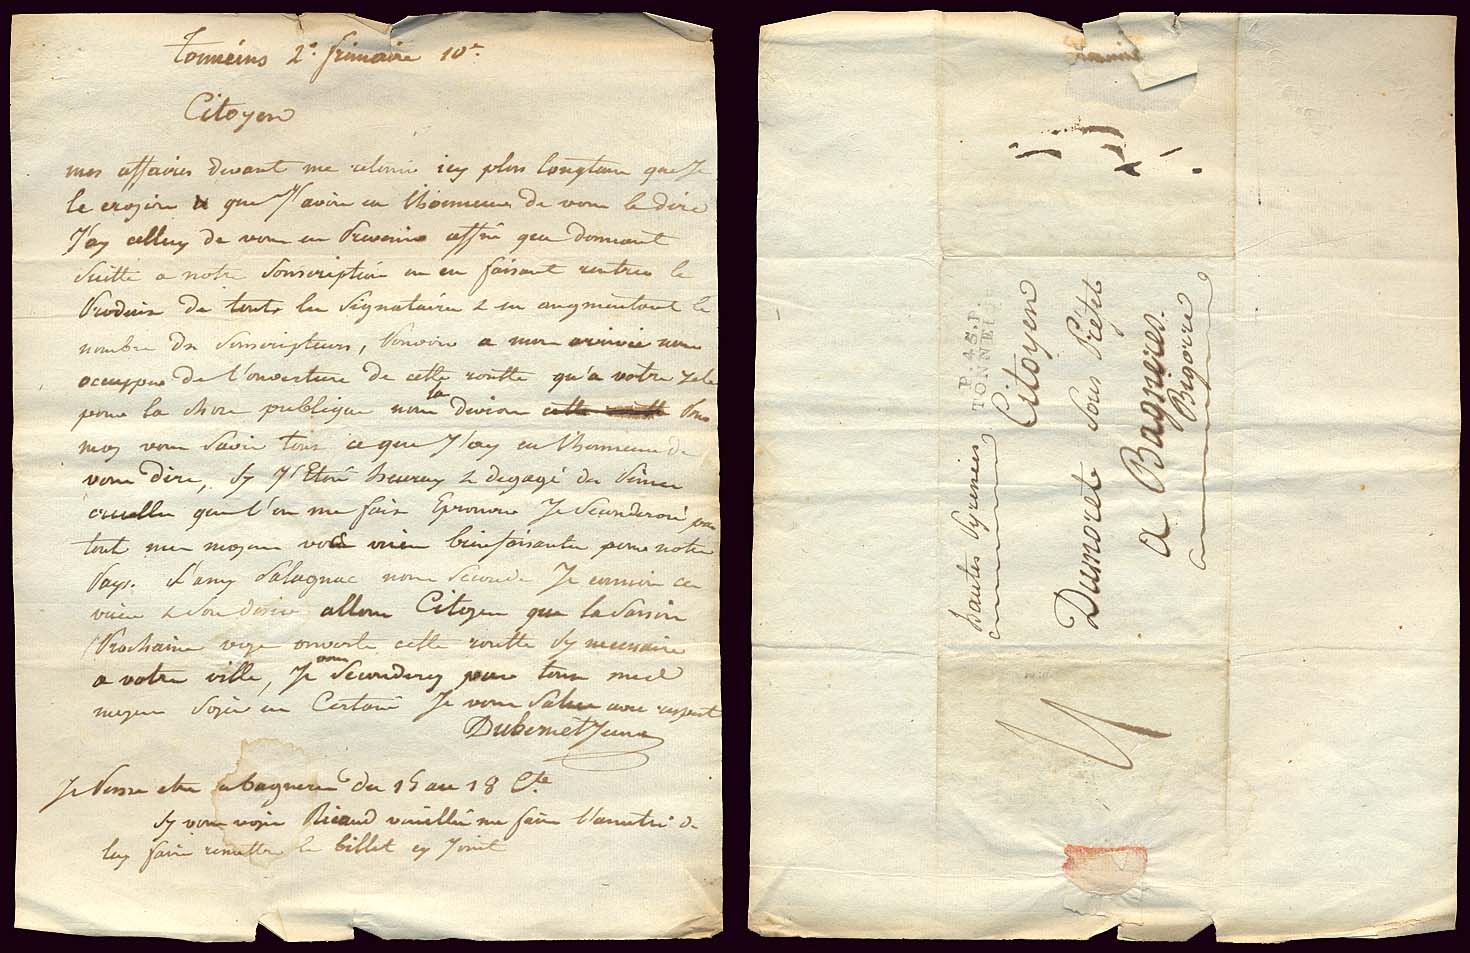 Tonneins 2e. frimaire 10e.
Citoyen
mes affaires devant me retenir icy plus longtems que Je
le croyois que J'avois eu l'honneur de vous le dire
J'ay celluy de vous en prevenir affin que donnant
suitte a notre Souscription en en faisant rentrer le
produit de tous les Signataires & en augmentant le
nombre des Souscripteurs, a mon arrivée nous
occupper de l'ouverture de cette routte qu'a votre zele
pour la chose publique nous la devions
moy vous savés tous ce que J'ay eu l'honneur de
vous dire, Sy J'Etois heureux & degagé des
cruelles que l'on me fait Eprouver Je Seconderois par
tout mes moyens vos vues bienfaisantes pour notre
pays. L'amy Salagnac nous Seconde Je connois ces
vues & Son desir allons Citoyen que la Saison
prochaine voye ouverte cette routte Sy necessaire
a votre ville, Je vous Seconderay pour tous mes
moyens Soyés en Certain Je vous Salue avec respect
Dubernet Jeune
Je pense etre a bagneres du 15 au 18 Ct.
Sy vous voyés Ricaud veuillés me faire l'amitié de
luy faire remettre le billet cy Joint
P.45.P.
TONNEINS
hautes pyrenées
Citoyen
Dumoret Sous Préfet
a Bagneres.
Bigorre